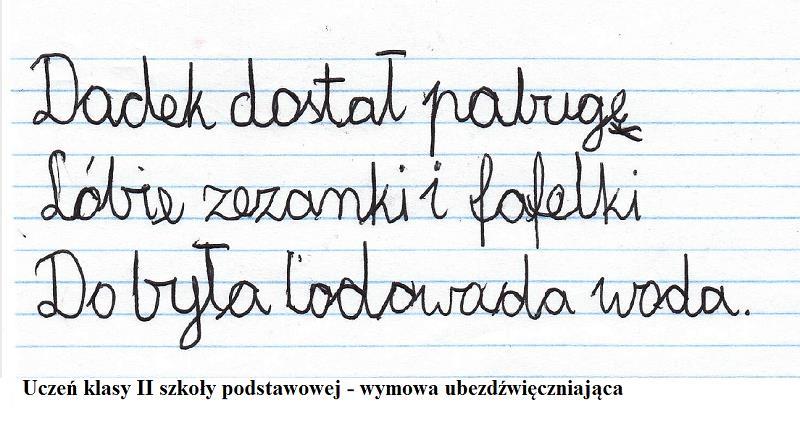 Dadek dostał pabugę
Lóbię zezanki i fafelki
Do była lodowada woda.
Uczeń klasy II szkoły podstawowej - wymowa ubezdźwięczniająca